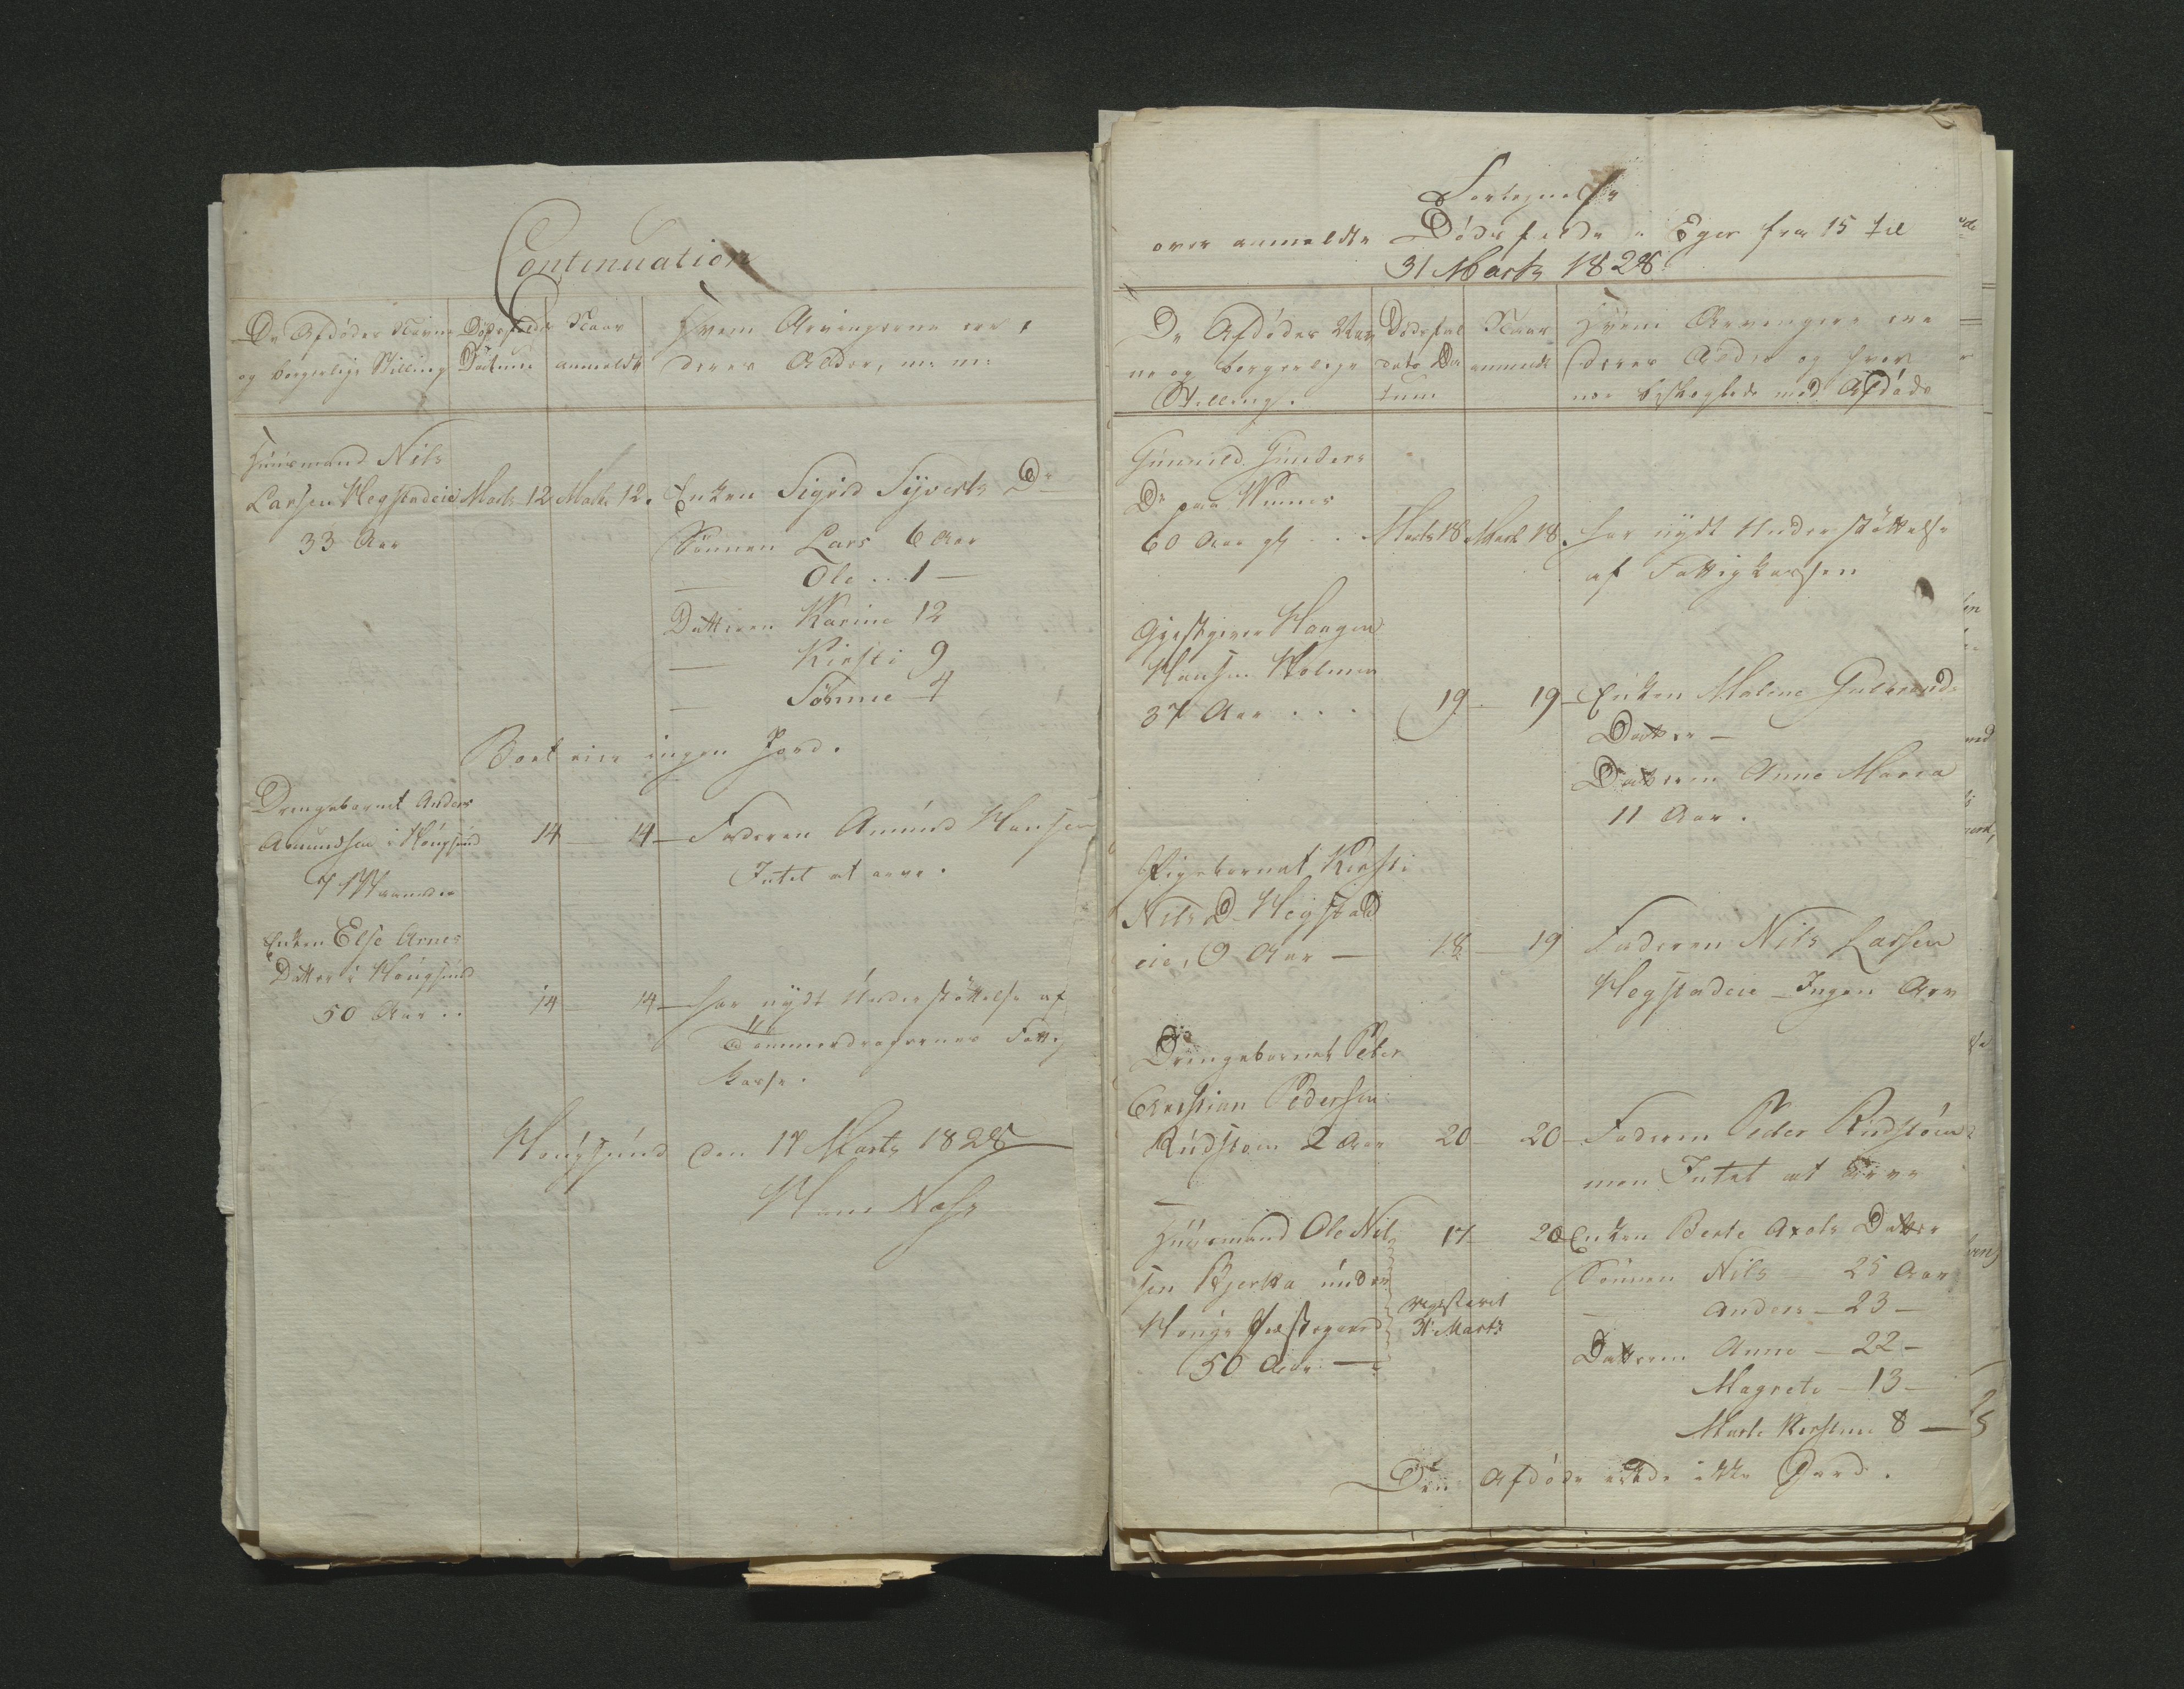 Continuation
De Afdödes Navne
og borgerlige Stilling
Dödsfaldets
Datum
Naar
anmeldt
Hvem Arvingerne ere,
deres Alder, m: m:
Huusmand Nils
Larsen Hegstadeie Marts 12 Marts 12. Enken Sigrid Syverts Dr
33 Aar
Sönnen Lars 6 Aar
— Ole ... 1 —
Datteren Karine 12
— Kirsti 9
— Sönnie 4
Boet eier ingen Jord.
Drengebarnet Anders
Amundsen i Hougsund 14 — 14 — Faderen Amund Hansen
7 Maaneder
Intet at arve.
Enken Else Arnes
Datter i Hougsund
50 Aar .. 14 — 14 — har nydt Understöttelse af
Tömmerdragernes Fattig
kasse.
Hougsund den 17 Marts 1828
Hans Næss
Fortegnelse
over anmeldte Dödsfalde i Eger fra 15 til
31 Marts 1828
De Afdödes Nav
ne og borgerlige
Stilling.
Dödsfal
dets Da
tum
Naar
anmeldt
Hvem Arvingere ere
deres Alder og hvor
nær beslegtede med Afdöde
Gunnild Gunders
Dr paa
60 Aar gl. .. Marts 18 Marts 18. har nydt Understöttelse
af Fattigkassen
Gjestgiver Haagen
Hansen Holmen
37 Aar ... 19 — 19 — Enken Malene Gulbrands
Datter —
Datteren Anne Maria
11 Aar.
Pigebarnet Kirsti
Nils D. Hegstad
eie, 9 Aar — 18 — 19 Faderen Nils Larsen
Hegstadeie — Ingen Arv
Drengebarnet Peter
Christian Pedersen
Rudstöm 2 Aar 20 — 20 — Faderen Peder Rudstöm
men Intet at arve
Huusmand Ole Nil 17 — 20 Enken Berte Axels Datter
sen Bjerka under
Sönnen Nils — 25 Aar
Hougs Præstegaard
registeret
31 Marts
— Anders — 23 —
50 Aar —
Datteren Anne — 22 —
Magrete — 13 —
Marte Kirstine 8 —
Den Afdöde eiede ikke Gaard.